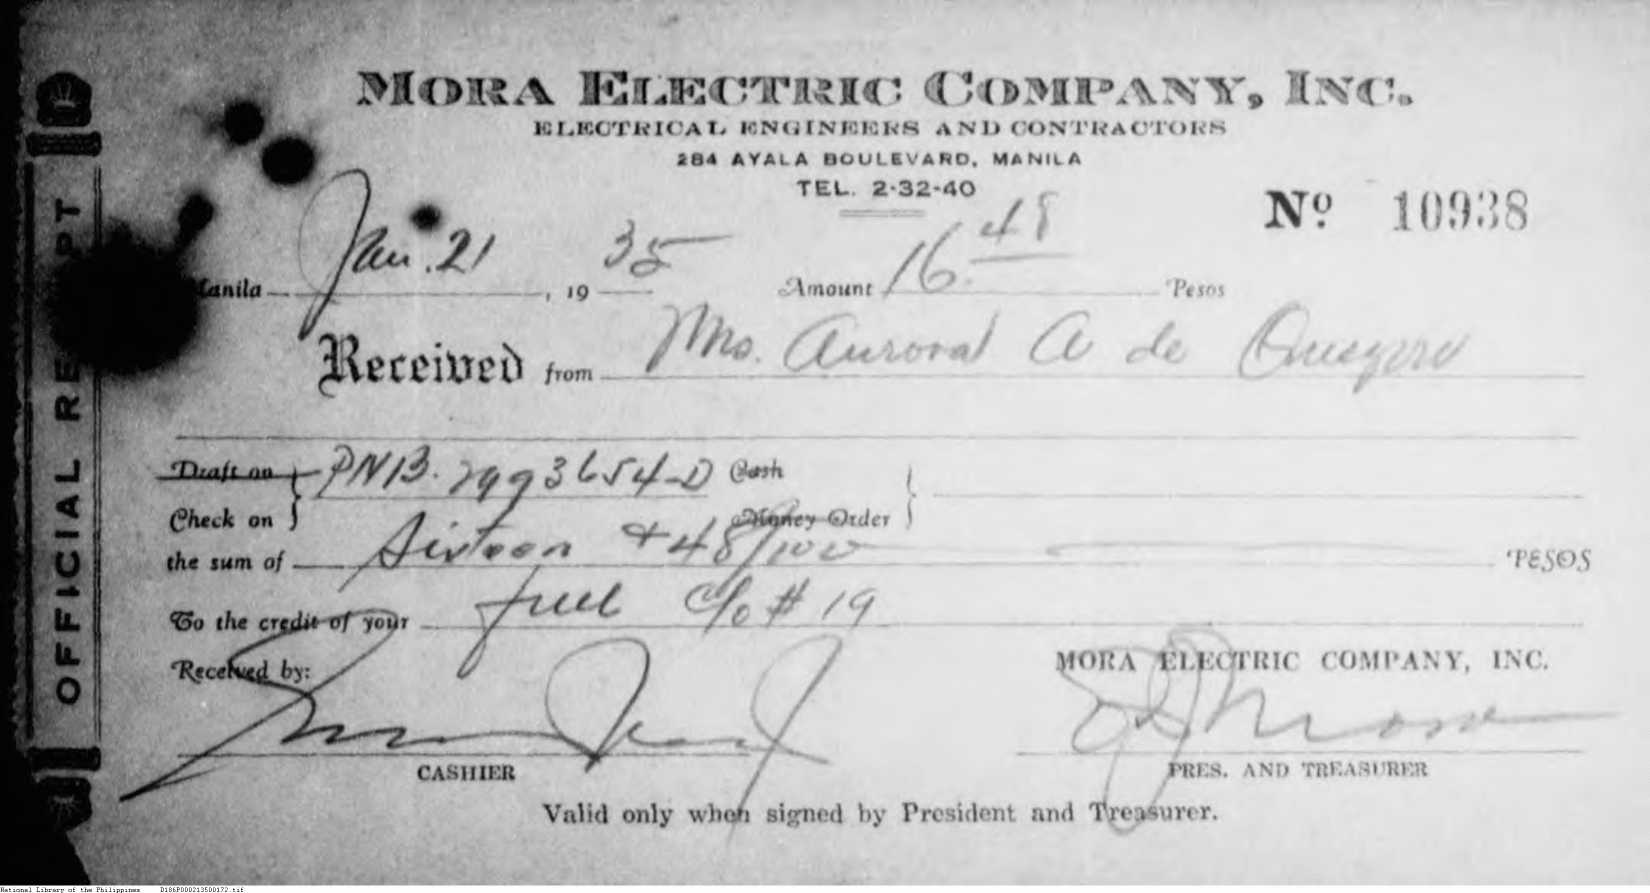 MORA ELECTRIC COMPANY, INC.
ELECTRICAL ENGINEERS AND CONTRACTORS
284 AYALA BOULEVARD, MANILA
TEL. 2-32-40
Nº 10938
Manila Jan. 21, 1935 Amount 16.48 Pesos
Received from Mrs. Aurora A de
Draft on PNB. 2993654-D Cash
Check on Money Order
the sum of Sixteen + 48/100 PESOS
To the credit of your full c/o # 19
Received by: MORA ELECTRIC COMPANY, INC.
CASHIER PRES. AND TREASURER
Valid only when signed by President and Treasurer.
OFFICIAL RECEIPT
National Library of the Philippines D186P000213500172.tif